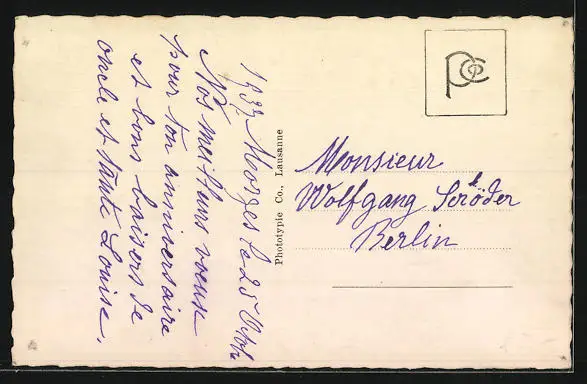 1937 Morges le 25 Octob
Nos meilleurs voeux
pour ton anniversaire
et bons baisers de
oncle et tante Louise.
Phototypie Co., Lausanne
Monsieur
Wolfgang Scröder
Berlin